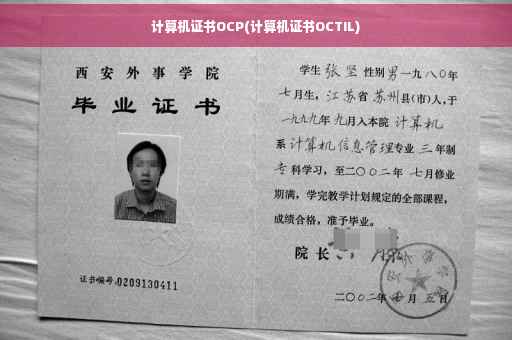 计算机证书OCP(计算机证书OCTIL)
西安外事学院
毕业证书
证书编号:0209130411
学生 张坚 性别男一九八〇年
七月生，江苏省 苏州县(市)人,于
一九九九年 九月入本院 计算机
系计算机信息管理专业 三 年制
专科学习，至二〇〇二年 七月修业
期满，学完教学计划规定的全部课程，
成绩合格，准予毕业。
院长
二〇〇二年 月五日